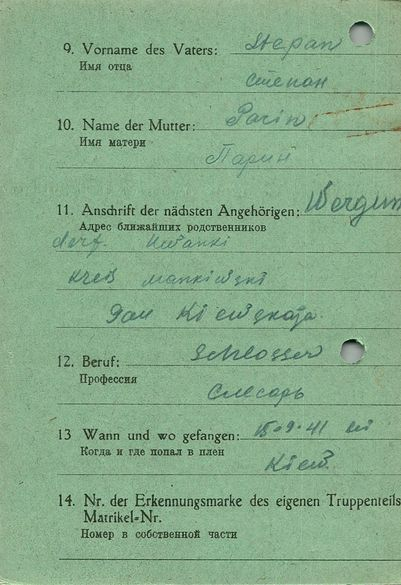 9. Vorname des Vaters: Stepan
Имя отца
степан
10. Name der Mutter: Parin
Имя матери
Парин
11. Anschrift der nächsten Angehörigen:
Адрес ближайших родственников
dorf. Iwanki
Kreis mankiwski
Kiewskaja
12. Beruf: Schlosser
Профессия
Слесарь
13 Wann und wo gefangen: 15.9.41
Когда и где попал в плен
Kiew.
14. Nr. der Erkennungsmarke des eigenen Truppenteils
Matrikel-Nr.
Номер в собственной части